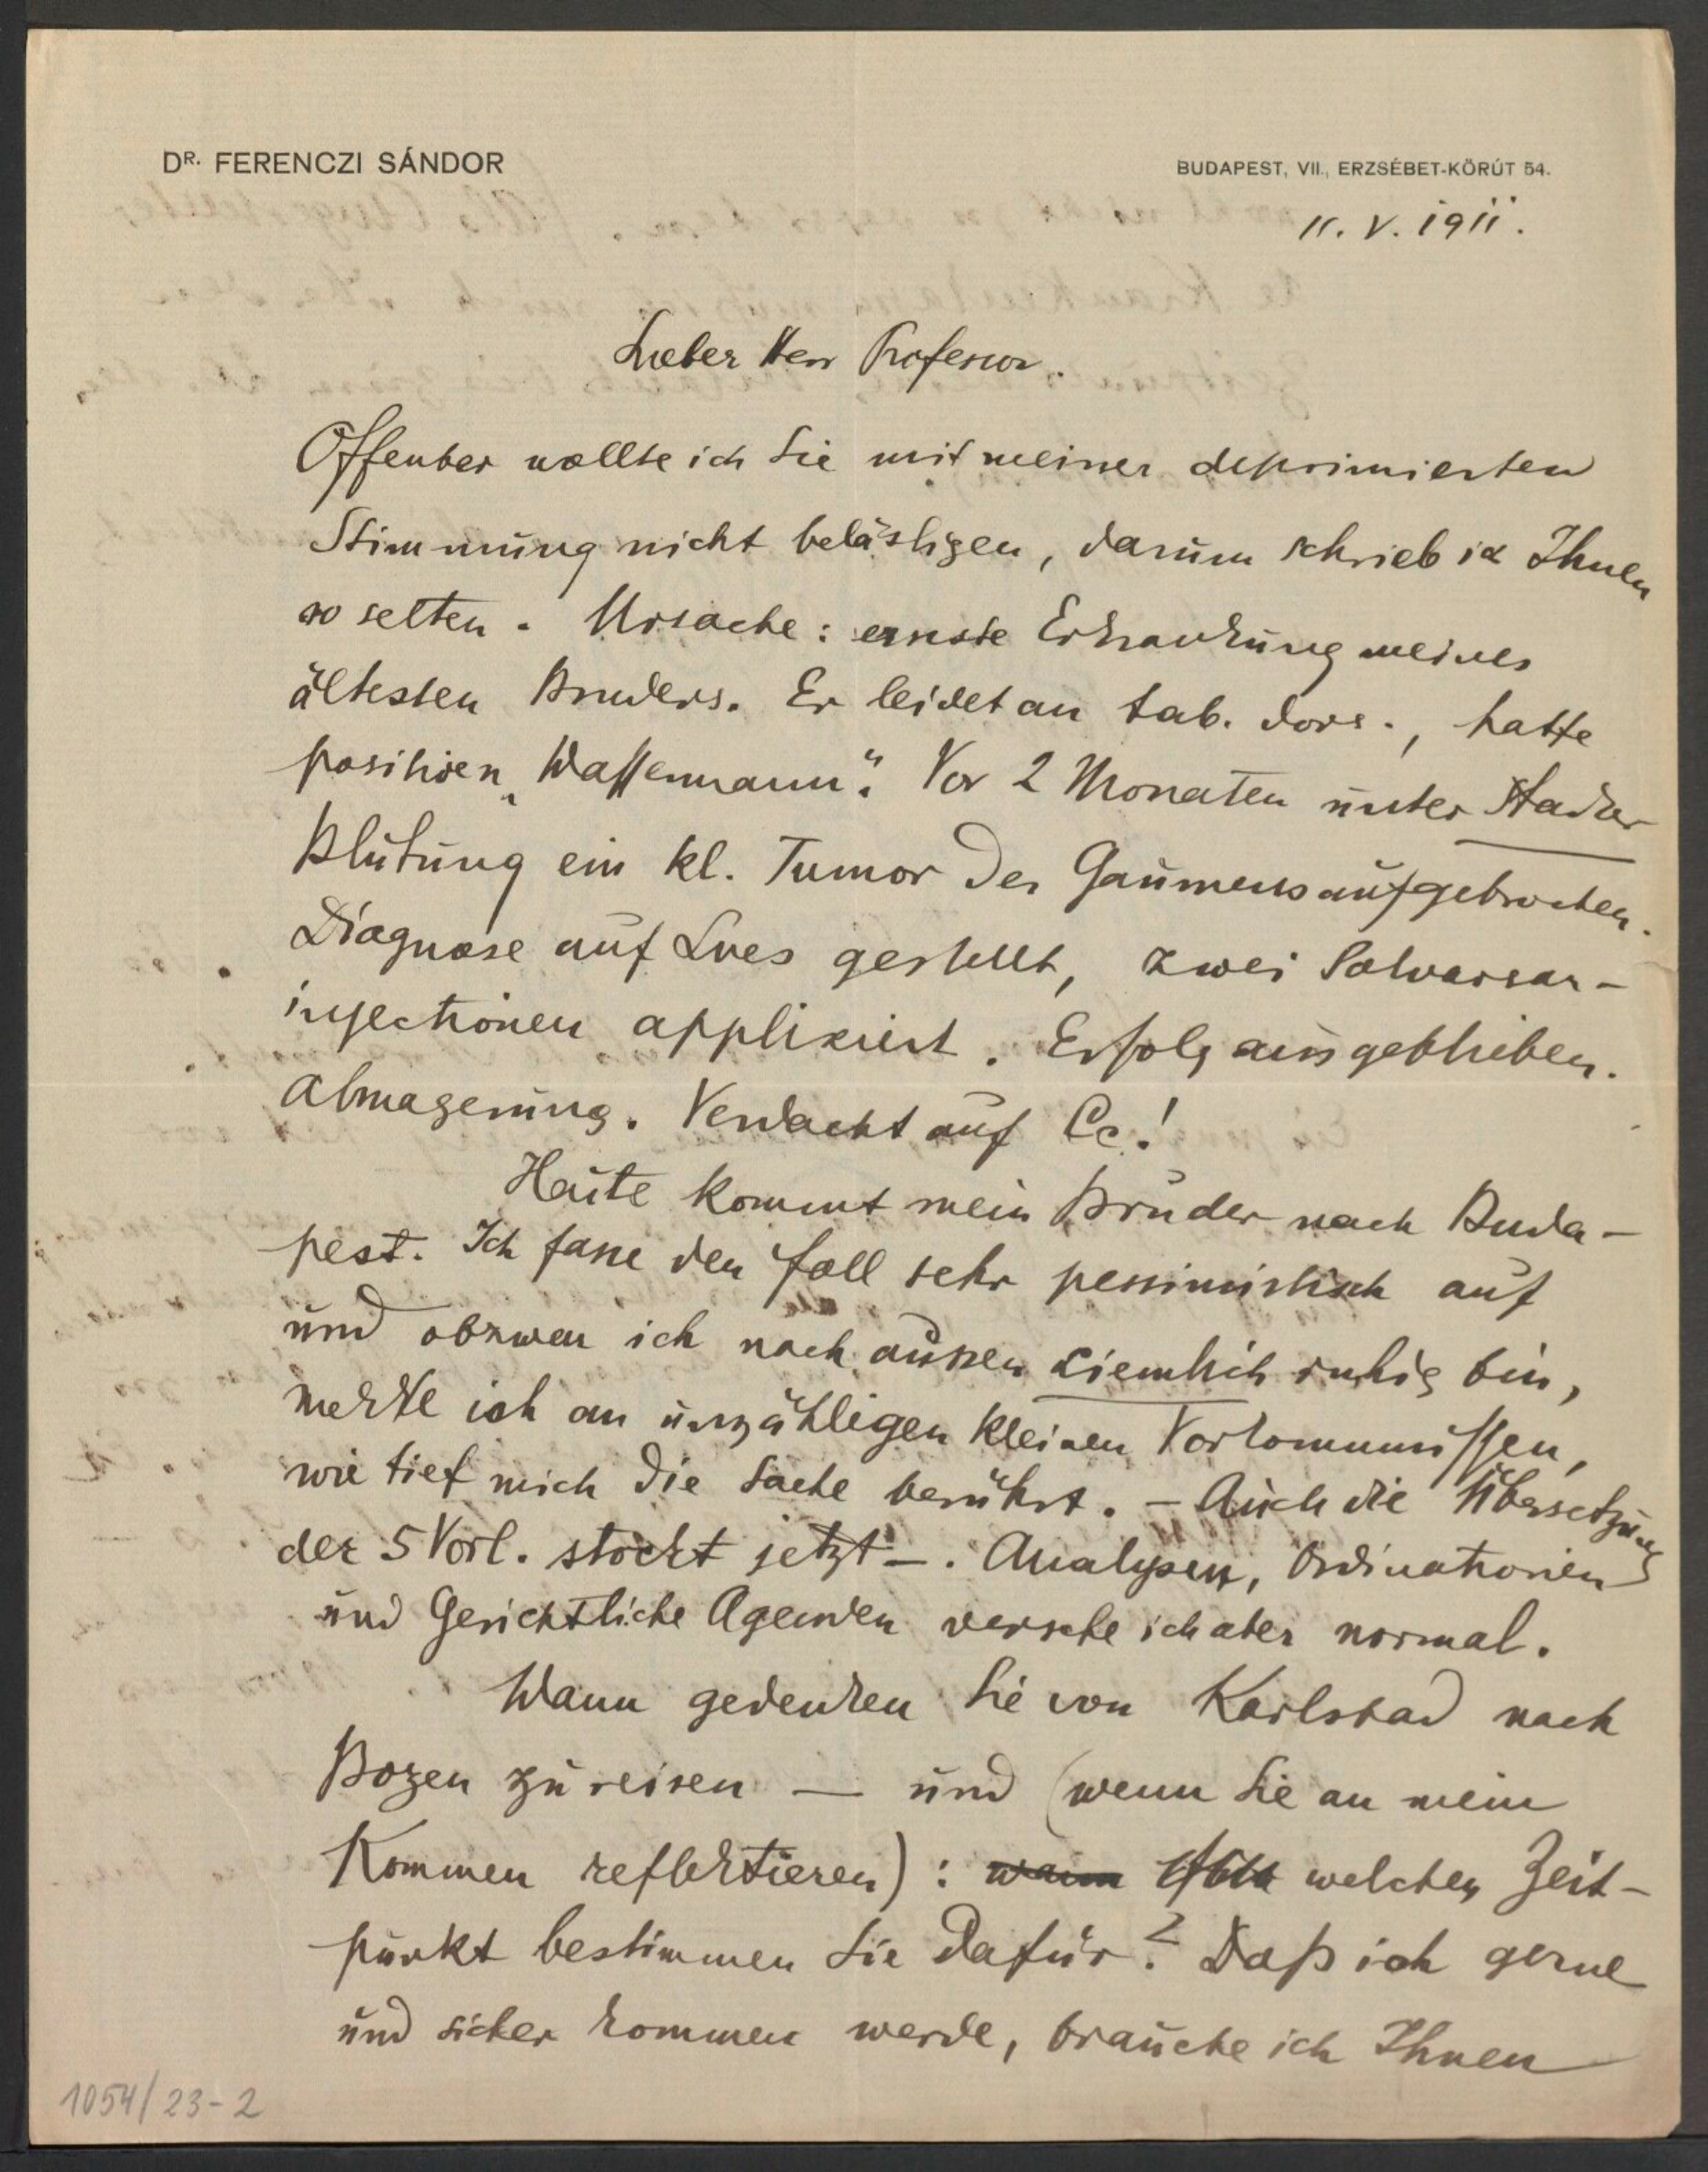 DR. FERENCZI SÁNDOR
BUDAPEST, VII., ERZSÉBET-KÖRÚT 54.
11. V. 1911.
Lieber Herr Professor.
Offenbar wollte ich Sie mit meiner deprimierten
Stimmung nicht belästigen, darum schrieb ich Ihnen
so selten. Ursache: ernste Erkrankung meines
ältesten Bruders. Er leidet an tab. dors., hatte
positiven „Wassermann“. Vor 2 Monaten unter starker
Blutung ein kl. Tumor des Gaumens aufgebrochen.
Diagnose auf Lues gestellt, zwei Salvarsan-
injectionen appliziert. Erfolg ausgeblieben.
Abmagerung. Verdacht auf Cc.!
Heute kommt mein Bruder nach Buda-
pest. Ich fasse den Fall sehr pessimistisch auf
und obzwar ich nach aussen ziemlich ruhig bin,
merkte ich an unzähligen kleinen Vorkommnissen,
wie tief mich die Sache berührt. – Auch die Übersetzung
der 5 Vorl. stockt jetzt –. Analysen, Ordinationen
und Gerichtliche Agenden versehe ich aber normal.
Wann gedenken Sie von Karlsbad nach
Bozen zu reisen — und (wenn Sie an mein
Kommen reflektieren): wann welchen Zeit-
punkt bestimmen Sie dafür? Daß ich gerne
und sicher kommen werde, brauche ich Ihnen
1054/23-2